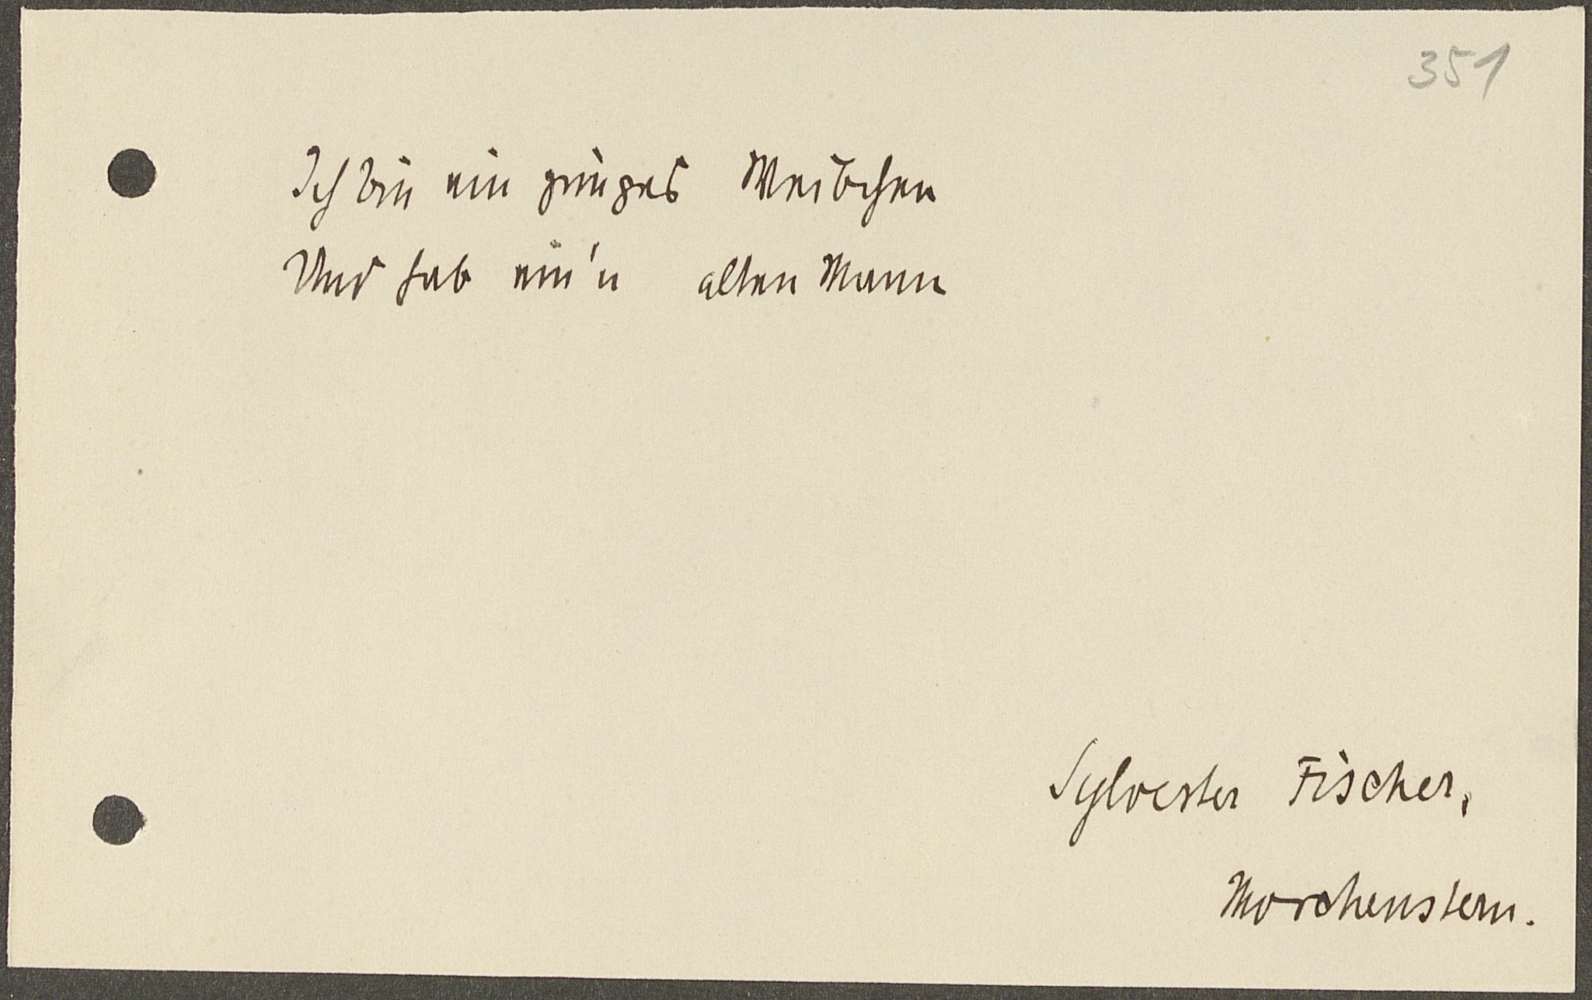 351
Ich bin ein junges Weibchen
Und hab ein'n alten Mann
Sylvester Fischer,
Morchenstern.